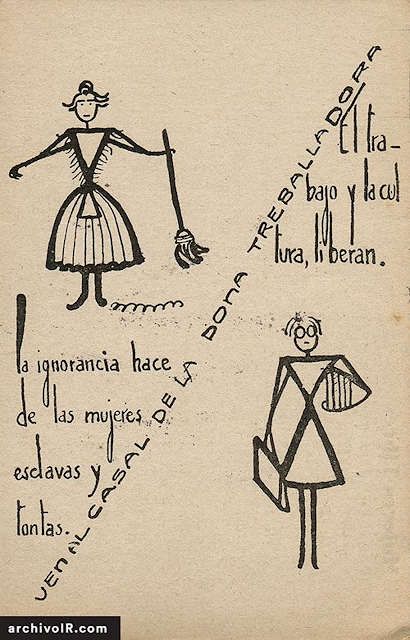 El tra-
bajo y la cul
tura, liberan.
VEN AL CASAL DE LA DONA TREBALLADORA
La ignorancia hace
de las mujeres
esclavas y
tontas.
archivoIR.com